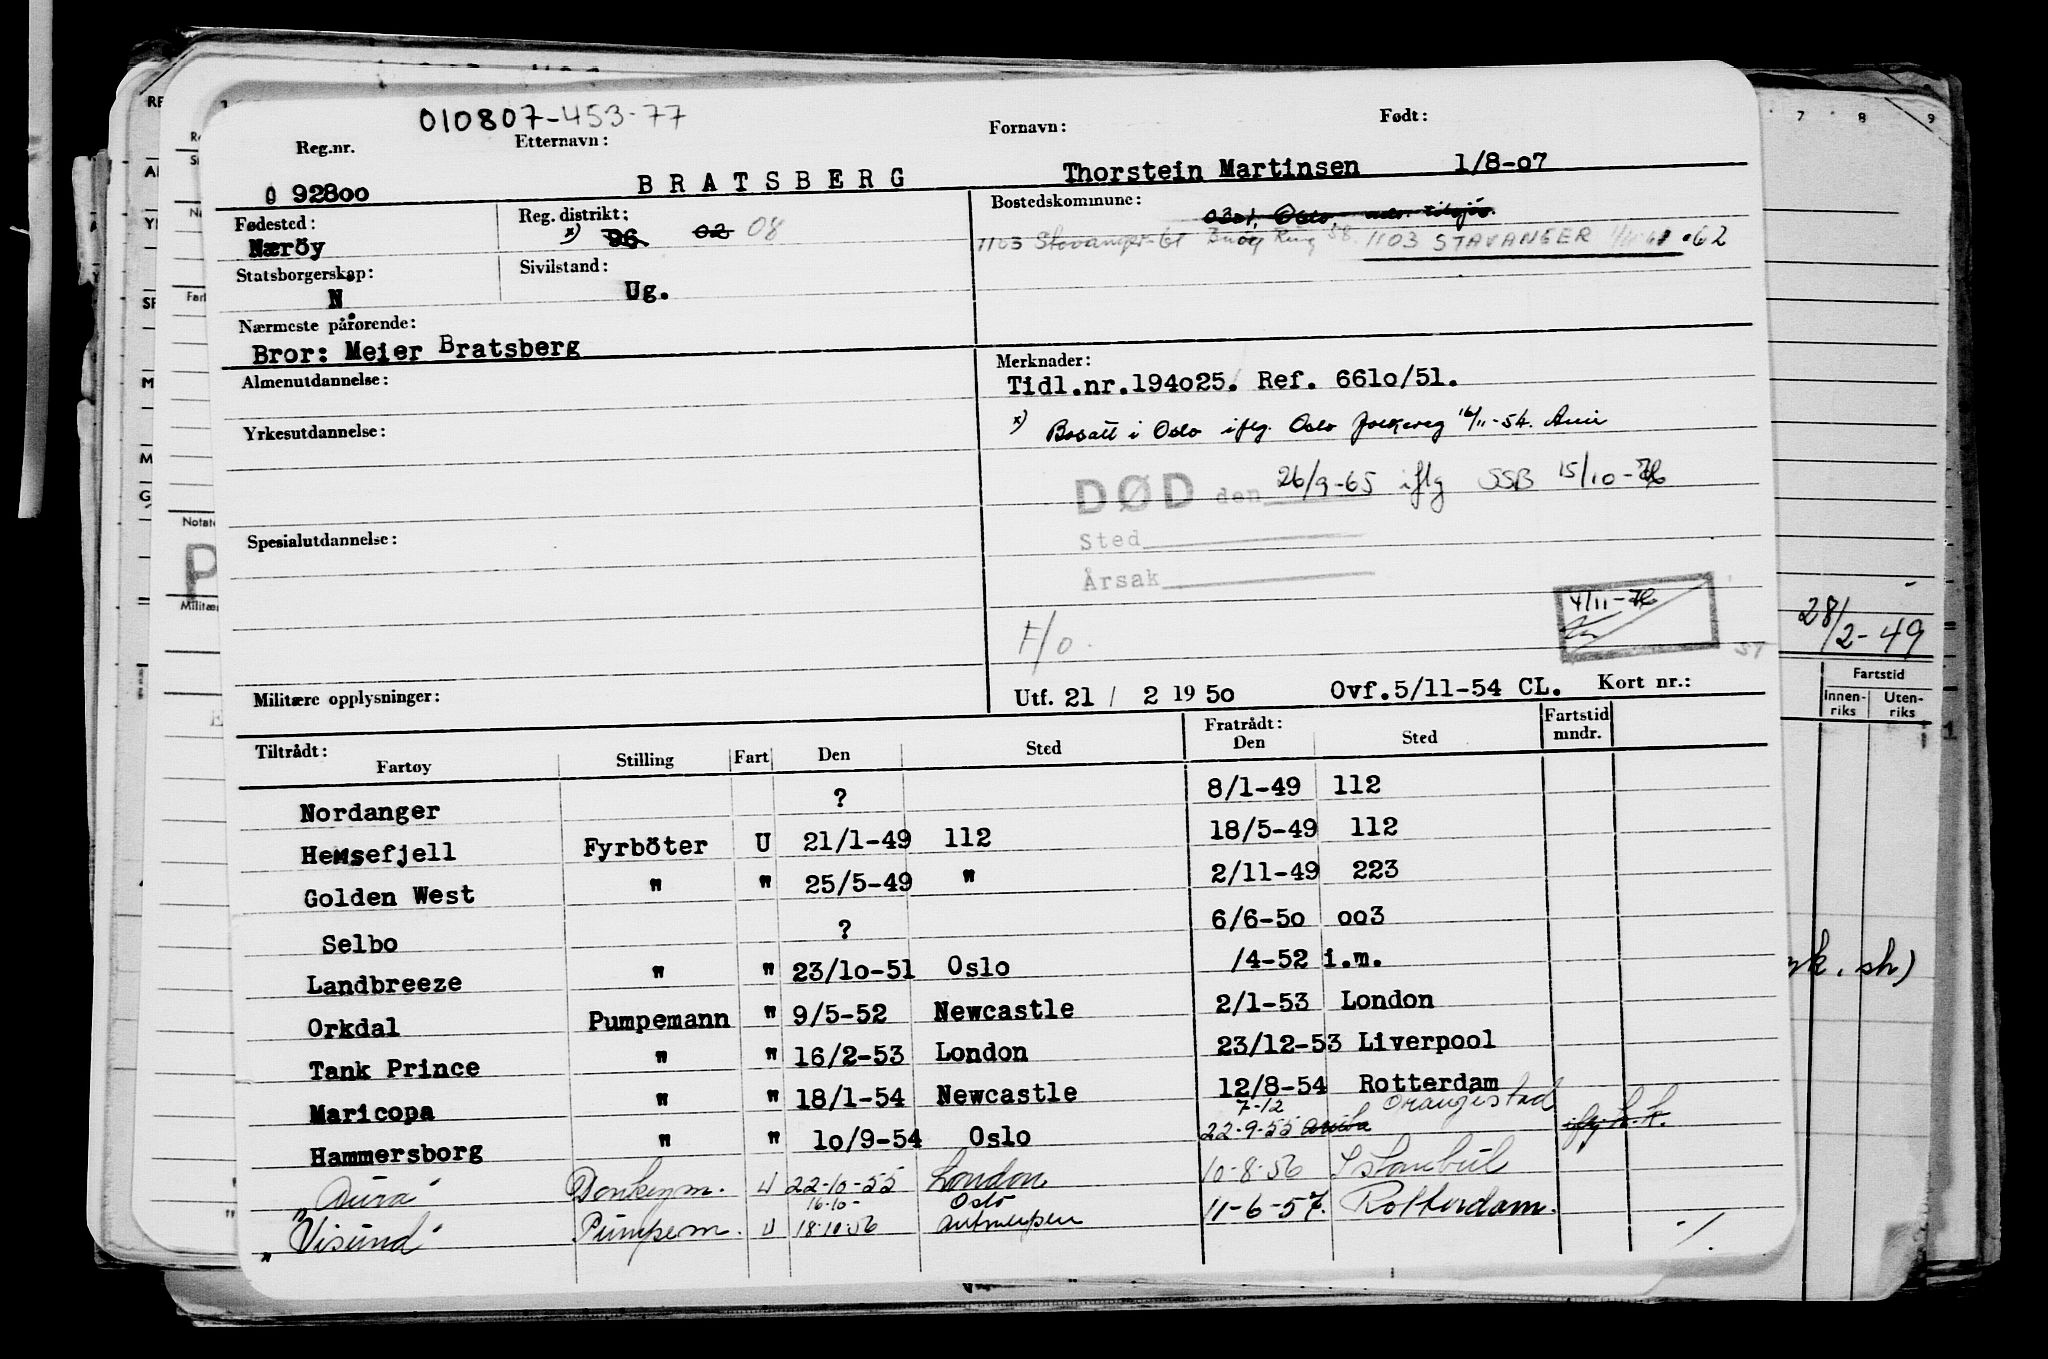 010807-453-77
Reg.nr. Etternavn: Fornavn: Født:
0 92800 BRATSBERG Thorstein Martinsen 1/8-07
Fødested: Reg. distrikt: Bostedskommune:
Næröy x) 96 02 08 0301, Oslo
1103 Stavanger 61 1103 STAVANGER -62
Statsborgerskap: Sivilstand:
N. Ug.
Nærmeste pårørende:
Bror: Meier Bratsberg
Almenutdannelse:
Yrkesutdannelse:
Spesialutdannelse:
Militære opplysninger:
Merknader:
Tidl.nr.194025. Ref. 6610/51.
x) Bosatt i Oslo iflg. Oslo folkereg 16/11-54.
DØD den 26/9-65 iflg SSB 15/10-76
Sted
Årsak
4/11-76
H/o.
51
Utf. 21 / 2 1950 Ovf.5/11-54 CL. Kort nr.:
Tiltrådt: Fratrådt: Fartstid mndr.
Fartøy Stilling Fart Den Sted Den Sted
Nordanger ? 8/1-49 112
Hemsefjell Fyrböter U 21/1-49 112 18/5-49 112
Golden West " " 25/5-49 " 2/11-49 223
Selbo ? 6/6-50 003
Landbreeze " " 23/10-51 Oslo /4-52 i.m.
Orkdal Pumpemann " 9/5-52 Newcastle 2/1-53 London
Tank Prince " " 16/2-53 London 23/12-53 Liverpool
Maricopa " " 18/1-54 Newcastle 12/8-54 Rotterdam
7-12 Orangestad
Hammersborg " " 10/9-54 Oslo 22-9-55 Aruba
"Aura" Donkeym. U 22-10-55 London 10-8-56 Istambul
16-10- Oslo
"Visund" Pumpem. U 18-10-56 Antwerpen 11-6-57. Rotterdam.
./.
7 8 9
28/2-49
Fartstid
Innen-riks Uten-riks
sk. sh)